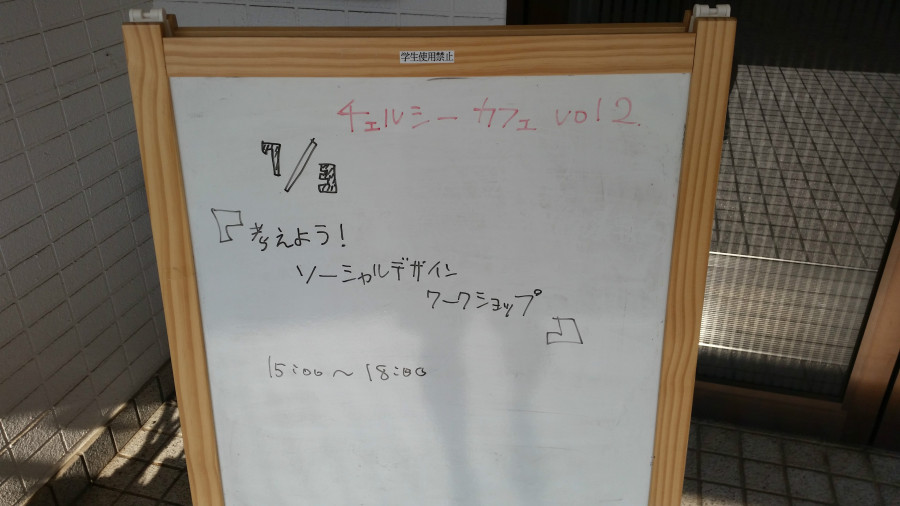 学生使用禁止
チェルシーカフェ vol2.
7/3
『考えよう!
ソーシャルデザイン
ワークショップ』
15:00〜18:00